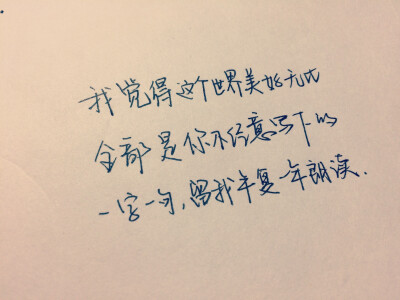 我觉得这个世界美好无比
全部是你不经意写下的
一字一句，留我年复一年朗读.